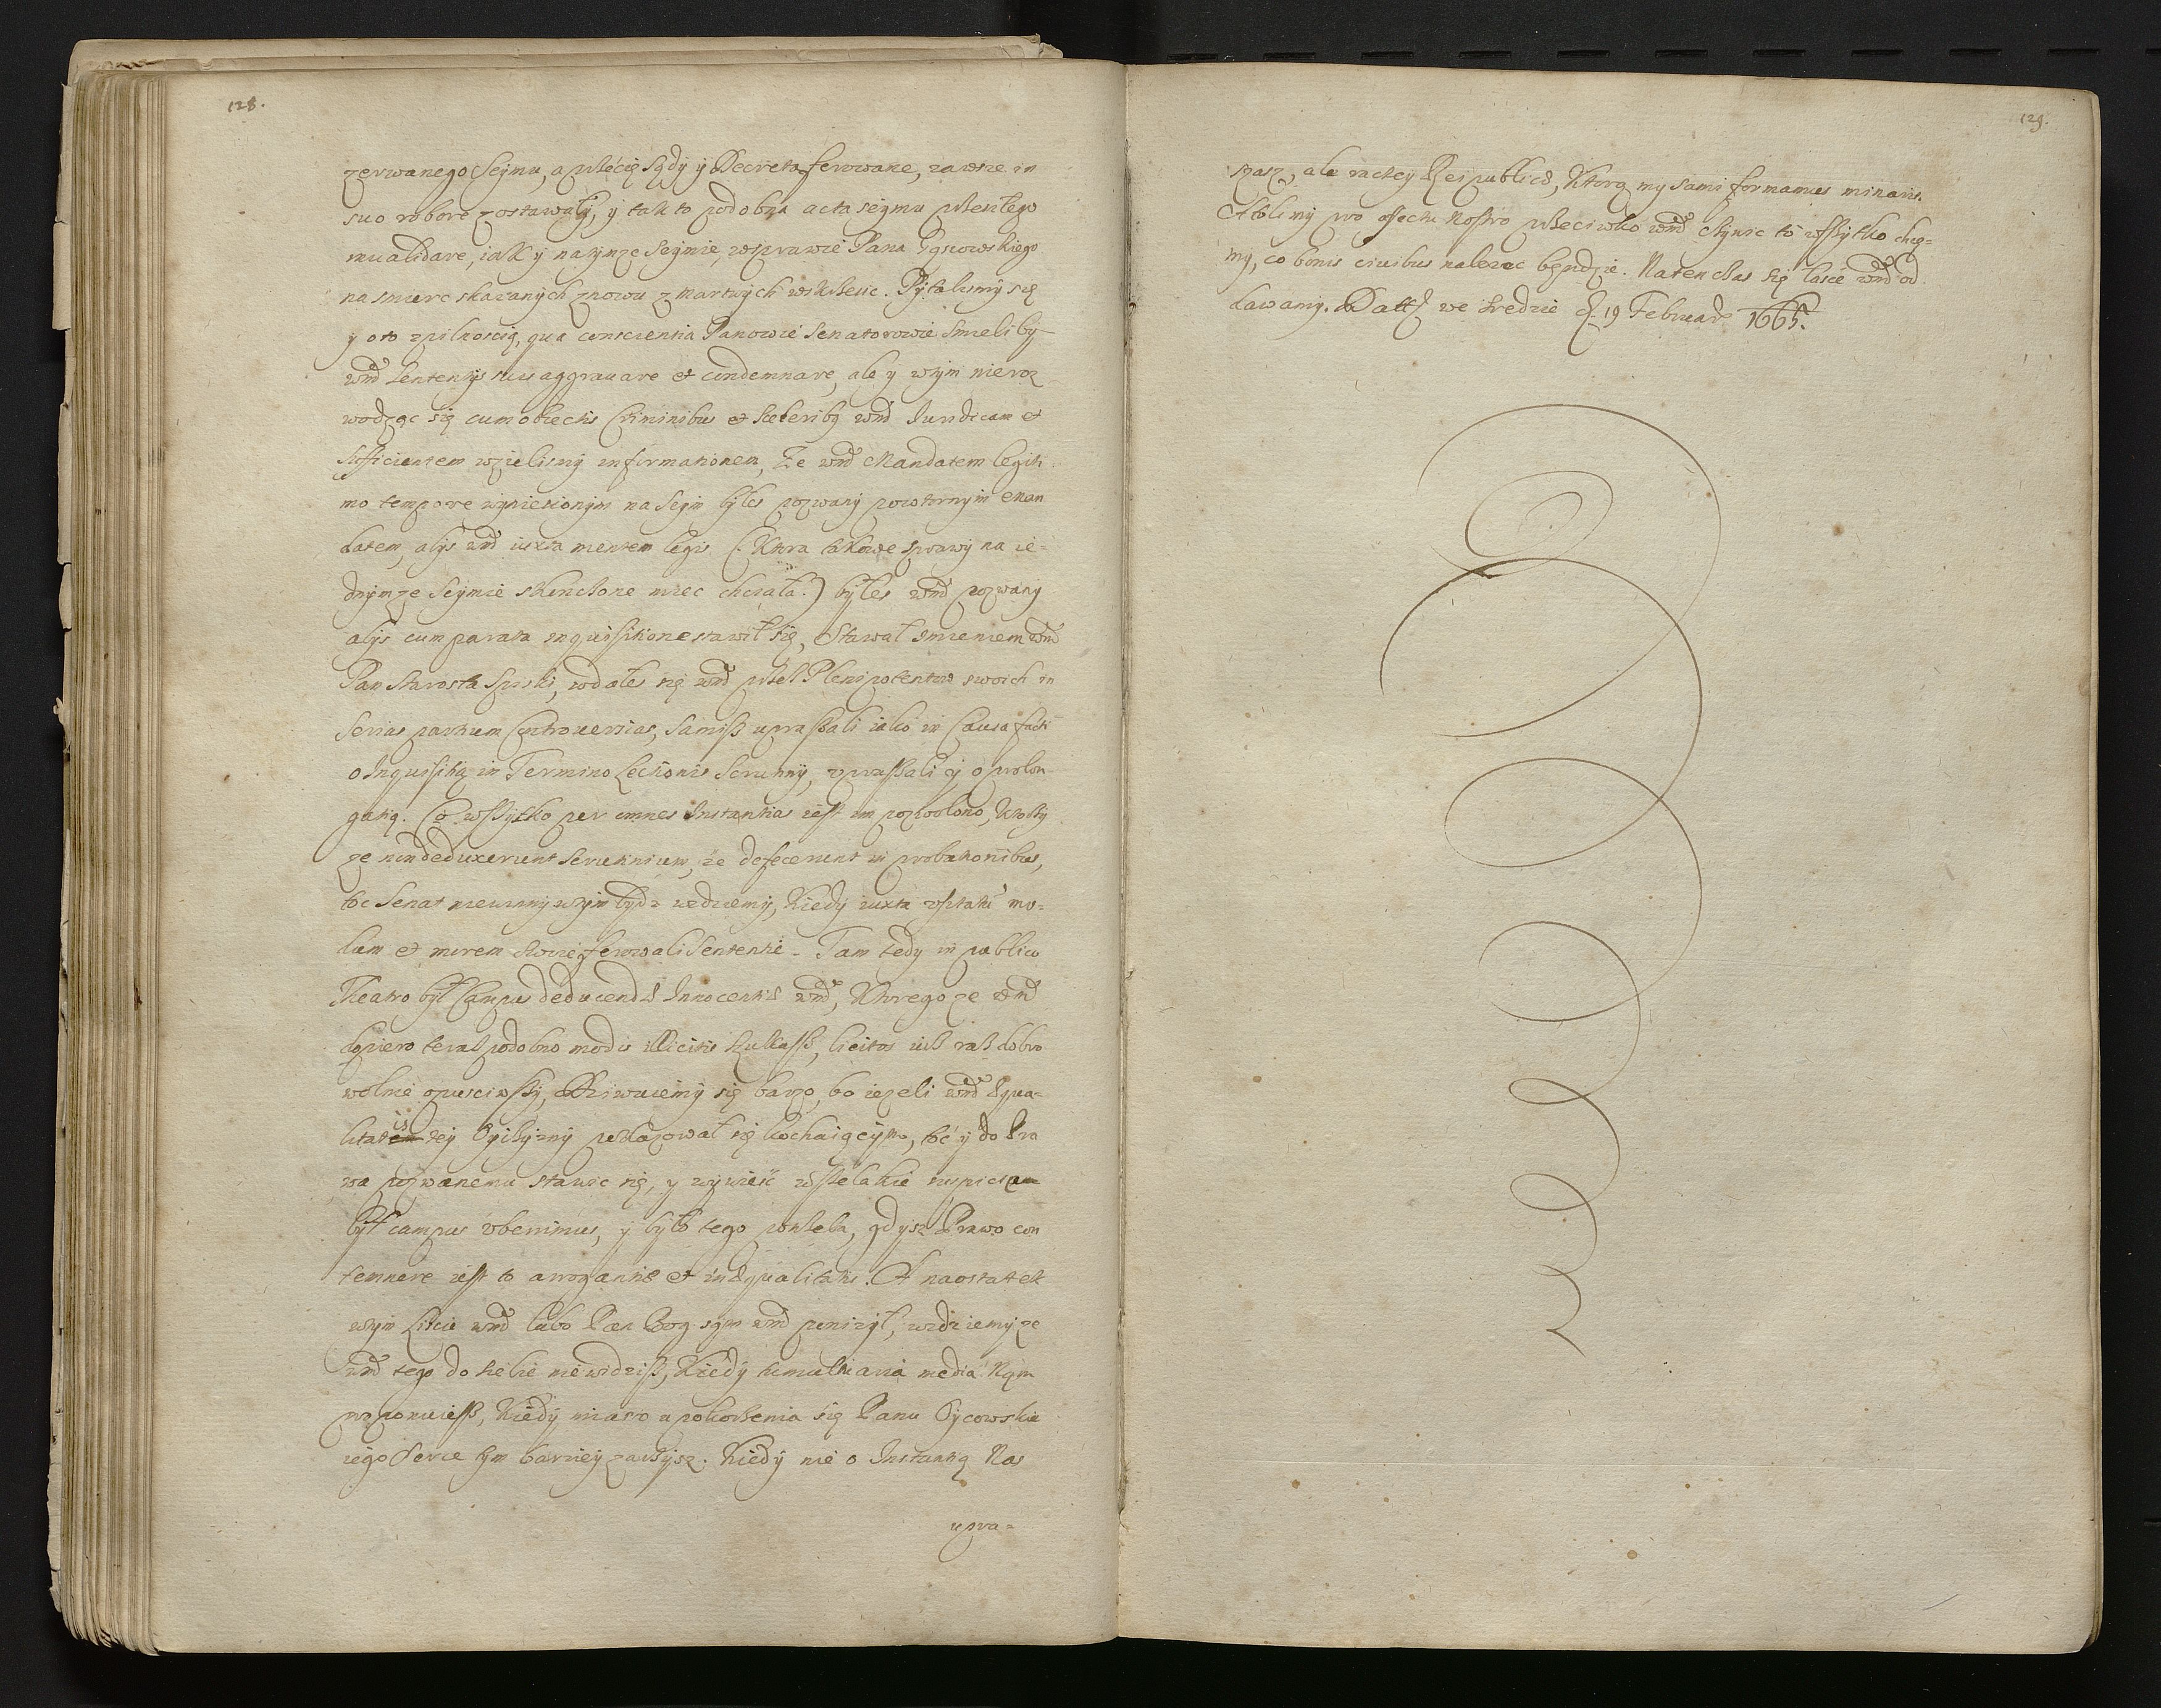 128.
zerwanego Seymu, a przecię sądy y Decreta ferowane, zawsze in
suo robore zostawały, y tak to podobna acta seymu przeszłego
inualidare, iak y na tymze Seymie, w sprawie Pana
na smierc skazanych znowu z martwych wskrzesic. Pytalismy się
y oto z pilnoscią, qua conscientia Panowie Senatorowie smieliby
wmć sententys suis aggrauare et condemnare, ale y w tym nieroz
wodząc się cum obiectis Criminibus et sceleribq wmć Iuridicam et
sufficientem wzielismy informationem, Ze wmć Mandatem legiti
mo tempore wyniesionym na Seym byłes pozwany powtornym man
datem, alys wmć iuxta mentem legis (. Ktora takowe sprawy na ie=
dnymze Seymie skonczone miec chciała.) byłes wmć pozwany
alys cum parata inquisitione stawił się, Stawał imieniem wmć
Pan Starosta Spiski, wdałes się wmć przez Plenipotentow swoich in
serias partium Controuersias, samisz upraszali iako in Causa facti
o Inquisitią in Termino Lectionis Scrutiny, upraszali y o prolon-
gatią. Co wszytko per omnes Instantias iest im pozwolono, Ktorzy
ze non deduxerunt Scrutinium, że defecerunt in probationibus,
toc Senat niewinny w tym bydz widziemy, Kiedy iuxta usitatū mo=
dum et morem swoie ferowali Sententie. Tam tedy in publico
Theatro był Campus deducendæ Innocentiæ wmć, Ktorego ze wmć
dopiero teraz podobno modis illicitis szukasz, licitos iusz rasz dobro
wolnie opusciwszy, Dziwuiemy się barzo, bo iezeli wmć æqua-
litatis tey Oyczyzny pokazował się kochaiącym, toć y do Pra
wa pozwanemu stawic się, y wywieść wszelakie suspicie
był campus uberrimus, y było tego potrzeba, gdysz Prawo con
temnere iest to arrogantiæ et inæqualitatis. A naostatek
w tym Liscie wmć lubo Pan Bog sam wmć ponizył, widziemy ze
wmć tego do siebie niewidzisz, Kiedy tumultuaria media Nąm
proponuiesz, Kiedy miasto upokorzenia się Panu Oycowskie
iego serce tym barziey zawzysz. Kiedy nie o Instantią Nas
upra=
129.
szasz, ale raczey Reipublicæ, Ktorą my sami formamus minaris.
Atolismy pro affectu Nostro przeciwko wmć czynic to wszytko chcę=
my, co bonis ciuibus nalezec będzie. Natenczas się łasce wmć od
dawamy. Datt w Srzedzie D. 19 Februar 1665.